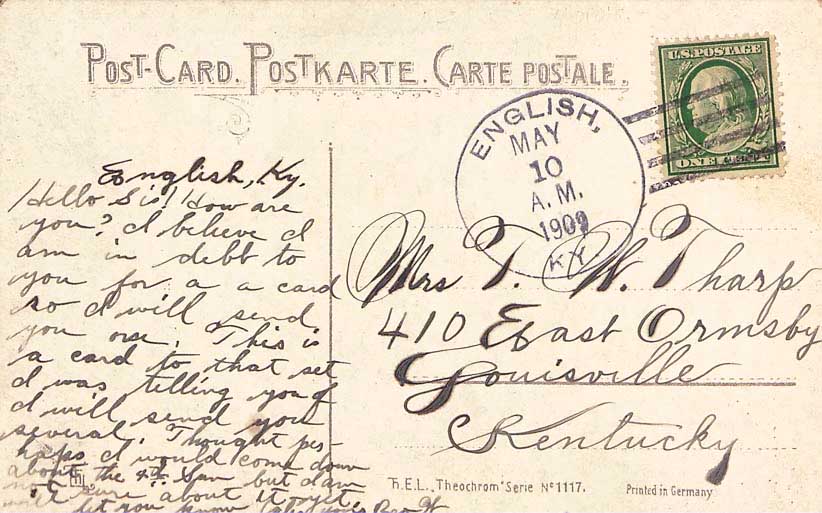 POST-CARD. POSTKARTE. CARTE POSTALE.
U.S. POSTAGE
ONE CENT
ENGLISH,
MAY
10
A.M.
1909
KY.
English, Ky.
Hello Sis! How are
you? I believe I
am in debt to
you for a a card
so I will send
you one. This is
a card to that set
I was telling you of
I will send you
several. Thought per-
haps I would come down
about the 4th Sun but I am
not sure about it yet.
will let you know
Mrs T. W. Tharp
410 East Ormsby
Louisville
Kentucky
H.E.L. „Theochrom" Serie No 1117.
Printed in Germany